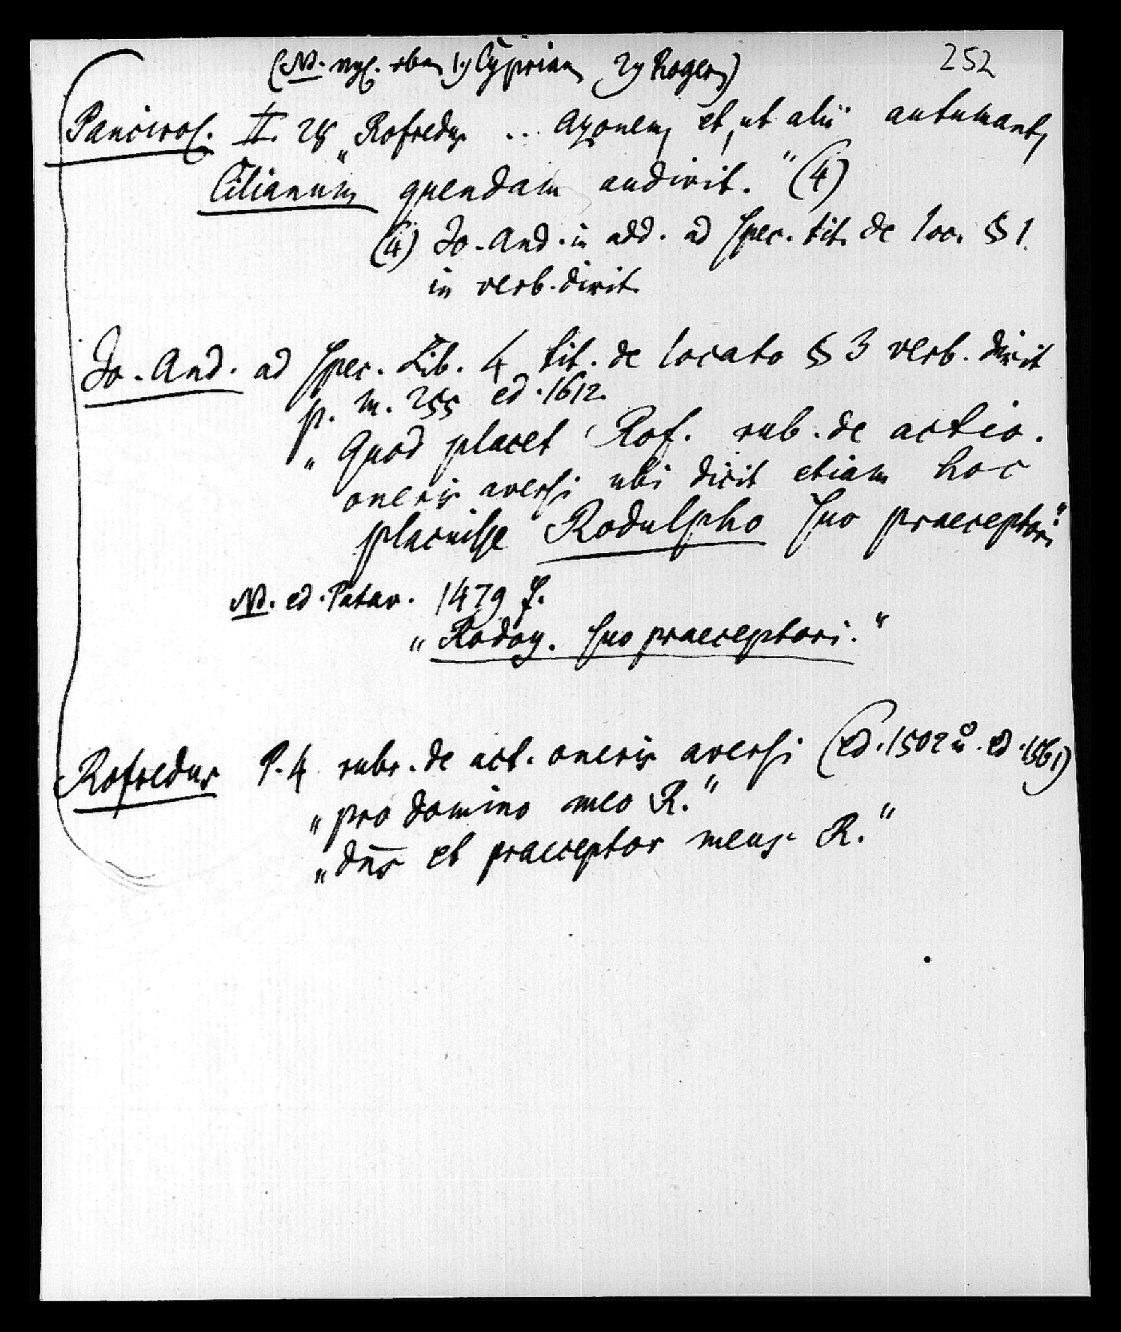 252
(Nb. vgl. oben 1) Cyprian 2) Roger)
Pancirol. II. 28 „Rofredus .. Azonem, et, ut alii autumant,
Cilianum quendam audivit." (4)
(4) Jo. And. in add. ad spec. tit. de loc. § 1.
in verb. dixit
Jo. And. ad spec. Lib. 4 tit. de locato § 3 verb. dixit
p. m. 255 ed. 1612.
„Quod placet Rof. rub. de actio.
oneris aversi ubi dicit etiam hoc
placuisse Rodulpho suo praeceptori"
Nb. ed. Patav. 1479 f.
„Rodog. suo praeceptori."
Rofredus P. 4 rubr. de act. oneris aversi (ed. 1502 u. ed. 1561)
„pro domino meo R."
„dns et praeceptor meus R."